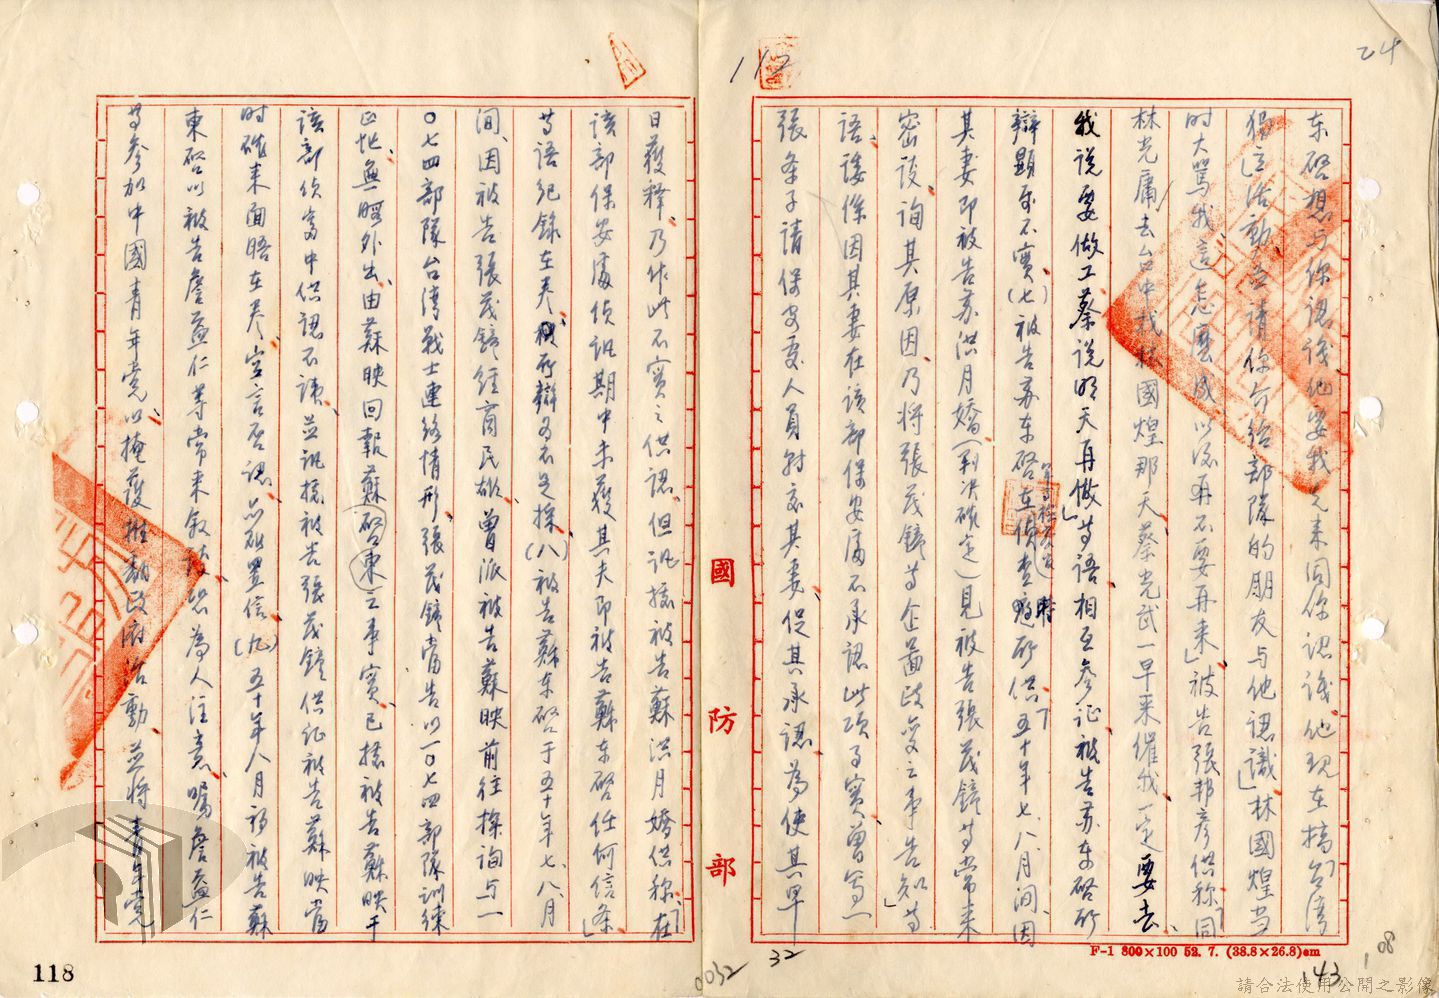 24
112
东啓想与你認識他要我先来同你認識他现在搞「台湾
独立活動」並請你介绍部隊的朋友与他認識」林國煌当
时大罵我這怎麼成以後再不要再来」被告張邦彥供称「同
林光庸去台中找林國煌那天蔡光武一早来催我一定要去
我说要做工蔡说明天再做」等语相互参证被告苏东啓所
辯顯系不實(七)被告苏东啓在侦查庭时所供「五十年七、八月间、因
其妻即被告苏洪月嬌(判决確定)見被告張茂鐘等常来
密议、询其原因、乃将張茂鐘等企圖政变之事告知」等
语、諉係因其妻在该部保安處不承認此项事實曾写一
張条子請保安處人員转交其妻、促其承認、為使其早
日獲釋、乃作此不實之供認、但訊據被告蘇洪月嬌供称、「在
该部保安處侦訊期中未獲其夫即被告蘇东啓任何信条」
等语纪錄在卷、所辯为不足採(八)被告蘇东啓于五十年七、八月
间、因被告張茂鐘經商民雄、曾派被告蘇映前往探询与一
〇七四部隊台湾戰士連络情形、張茂鐘当告以一〇七四部隊训练
正忙、無暇外出、由蘇映回報蘇啓東之事實、已據被告蘇映于
该部侦查中供認不諱、並訊據被告張茂鐘供証被告蘇映当
时確来面晤在卷、空言否認、亦砥置信(九)五十年八月初被告蘇
東啓以被告詹益仁等常来敘談恐為人注意、嘱詹益仁
等参加中國青年党、以掩護推翻政府活動、並将青年党
國防部
F-1 800×100 52. 7. (38.8×26.8)cm
118
0032
32
143
108
請合法使用公開之影像